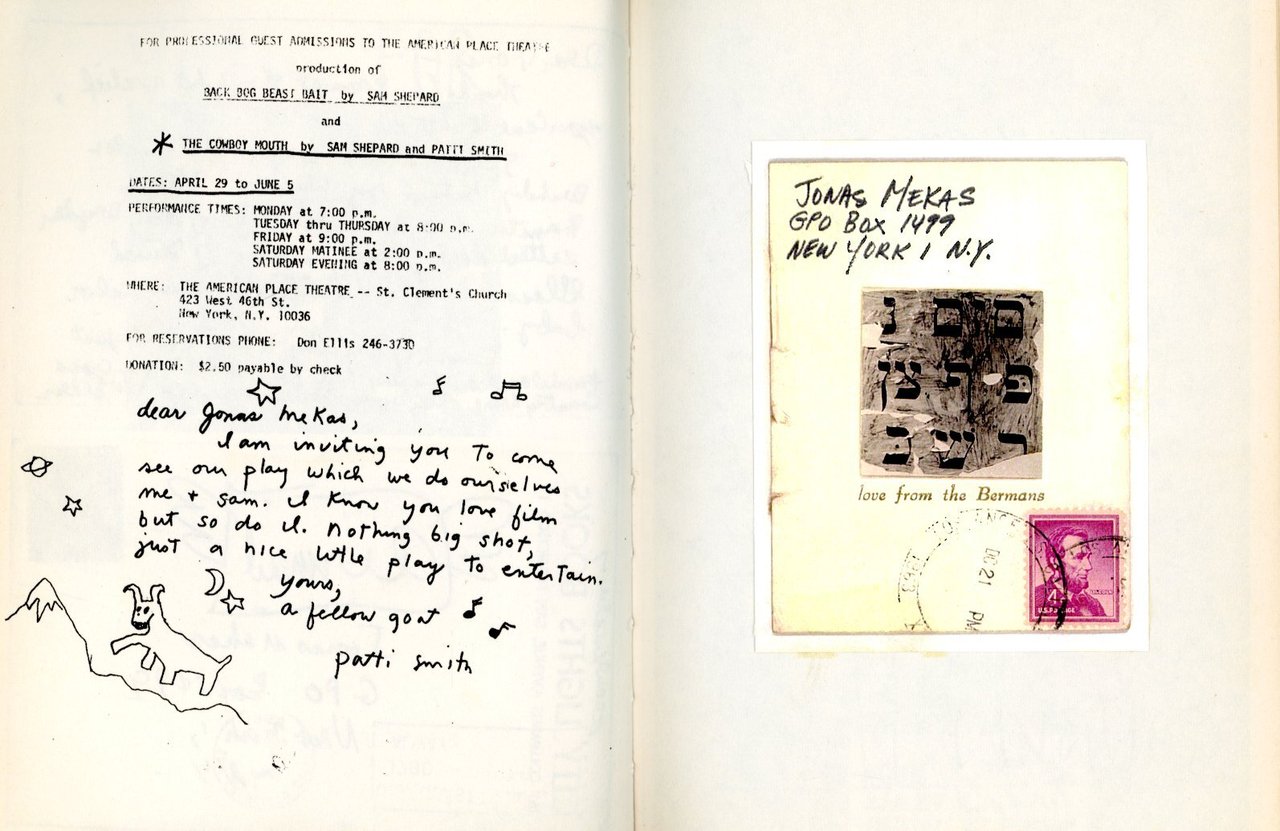 FOR PROFESSIONAL GUEST ADMISSIONS TO THE AMERICAN PLACE THEATRE
production of
BACK BOG BEAST BAIT by SAM SHEPARD
and
* THE COWBOY MOUTH by SAM SHEPARD and PATTI SMITH
DATES: APRIL 29 to JUNE 5
PERFORMANCE TIMES: MONDAY at 7:00 p.m.
TUESDAY thru THURSDAY at 8:00 p.m.
FRIDAY at 9:00 p.m.
SATURDAY MATINEE at 2:00 p.m.
SATURDAY EVENING at 8:00 p.m.
WHERE: THE AMERICAN PLACE THEATRE -- St. Clement's Church
423 West 46th St.
New York, N.Y. 10036
FOR RESERVATIONS PHONE: Don Ellis 246-3730
DONATION: $2.50 payable by check
dear Jonas Mekas,
I am inviting you to come
see our play which we do ourselves
me + sam. I know you love film
but so do I. nothing big shot,
just a nice little play to entertain.
yours,
a fellow goat
patti smith
JONAS MEKAS
GPO Box 1499
NEW YORK 1 N.Y.
ם ם נ
פ ף צ ץ
ר ש
love from the Bermans
DEC 21
PM
4¢
LINCOLN
U.S. POSTAGE